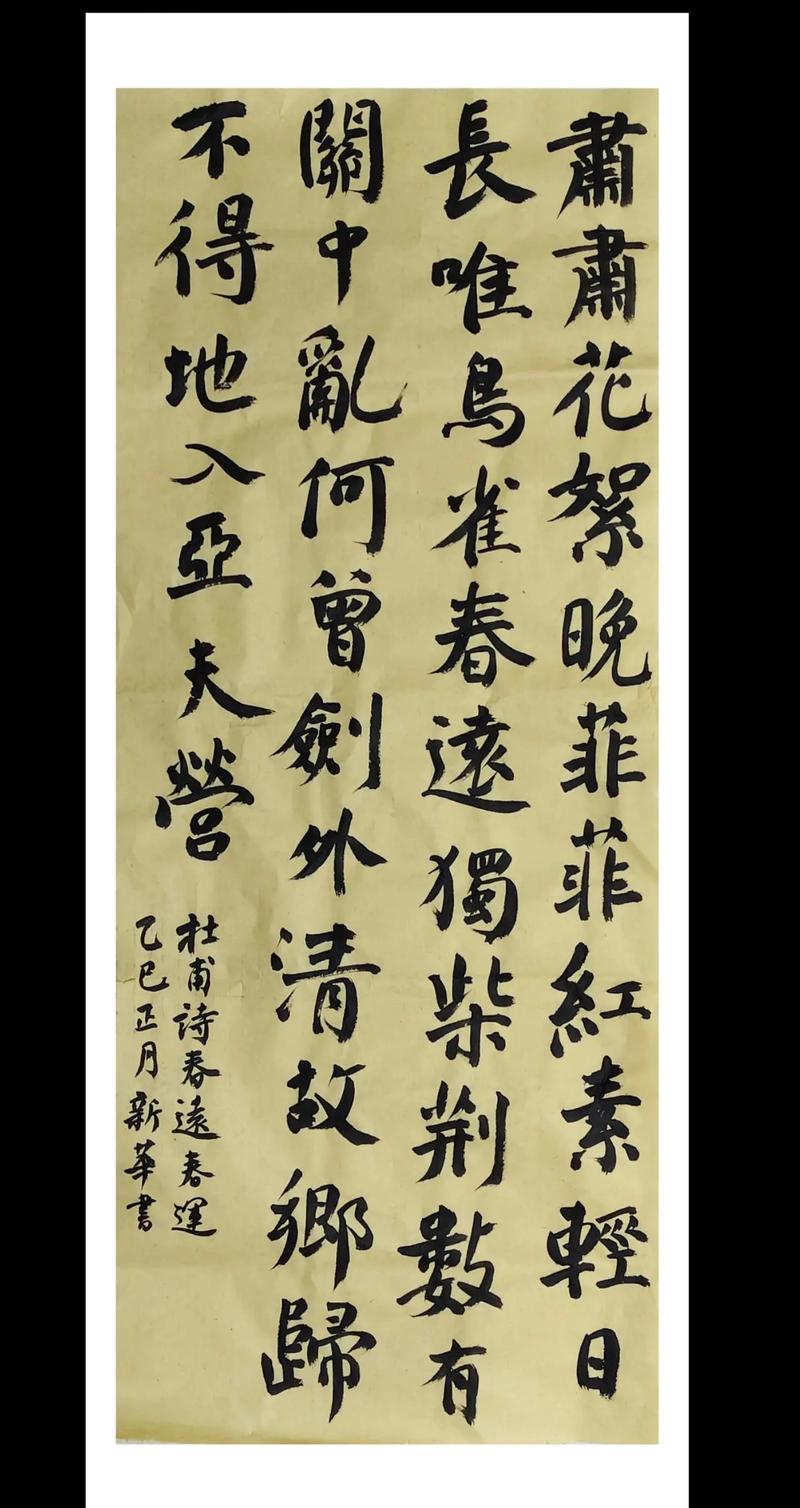 肅肅花絮晚菲菲紅素輕日
長唯鳥雀春遠獨柴荆數有
關中亂何曾劍外清故鄉歸
不得地入亞夫營
杜甫詩春遠春運
乙巳正月新華書